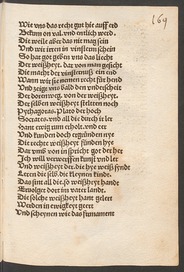 169
Wie uns das recht gut hie auff erd
Bekum on val. und entlich werd.
Die weile aber das nit mag sein
Und wir irren in vinsterm schein
So hat got geben uns das liecht
Der weißheyt. Da von man gesicht
Die macht der vinsterniß ein end
Wann wir sie nemen recht für hend
Und zeigt uns bald den underscheit
Der Der selben weißheyt stifter noch
Pythagoras. Plato der hoch
Socrates. und all die durch ir ler
Han ewig rum erholt. und er
Und kunden doch ergründen nye
Die recht weißheyt funden hye
Dar umb von in spricht got der her
Ich will verwerffen kunst und ler
Und weißheyt der. die hye weiß synd
Leren die selb. die kleynen kinde.
Das sint all die. so weißheyt hande
Ervolget dort im vater lande.
Die solche weißheyt hant gelert
Werden in ewigkeyt geert
Und scheynen wie das firmament